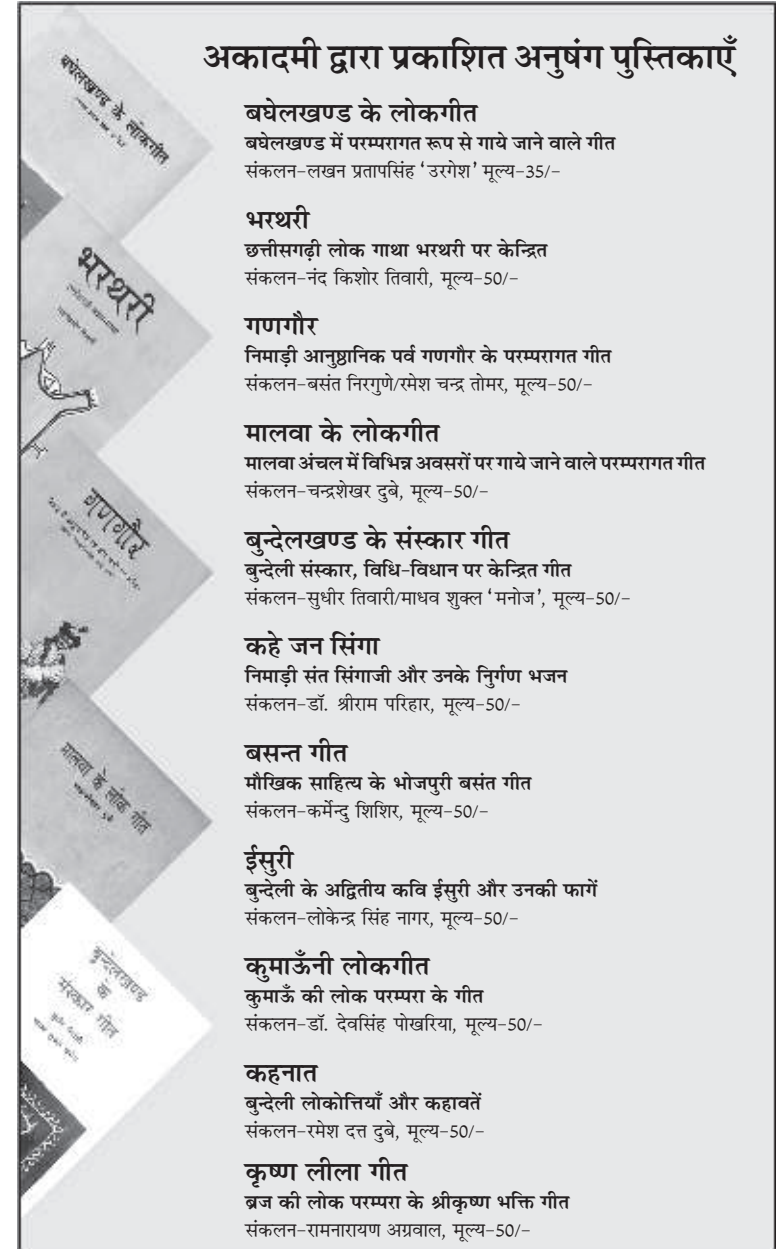 अकादमी द्वारा प्रकाशित अनुषंग पुस्तिकाएँ
बघेलखण्ड के लोकगीत
बघेलखण्ड में परम्परागत रूप से गाये जाने वाले गीत
संकलन-लखन प्रतापसिंह ‘उरगेश’ मूल्य-35/-
भरथरी
छत्तीसगढ़ी लोक गाथा भरथरी पर केन्द्रित
संकलन-नंद किशोर तिवारी, मूल्य-50/-
गणगौर
निमाड़ी आनुष्ठानिक पर्व गणगौर के परम्परागत गीत
संकलन-बसंत निरगुणे/रमेश चन्द्र तोमर, मूल्य-50/-
मालवा के लोकगीत
मालवा अंचल में विभिन्न अवसरों पर गाये जाने वाले परम्परागत गीत
संकलन-चन्द्रशेखर दुबे, मूल्य-50/-
बुन्देलखण्ड के संस्कार गीत
बुन्देली संस्कार, विधि-विधान पर केन्द्रित गीत
संकलन-सुधीर तिवारी/माधव शुक्ल ‘मनोज’, मूल्य-50/-
कहे जन सिंगा
निमाड़ी संत सिंगाजी और उनके निुर्गण भजन
संकलन-डॉ. श्रीराम परिहार, मूल्य-50/-
बसन्त गीत
मौखिक साहित्य के भोजपुरी बसंत गीत
संकलन-कर्मेन्दु शिशिर, मूल्य-50/-
ईसुरी
बुन्देली के अद्वितीय कवि ईसुरी और उनकी फागें
संकलन-लोकेन्द्र सिंह नागर, मूल्य-50/-
कुमाऊँनी लोकगीत
कुमाऊँ की लोक परम्परा के गीत
संकलन-डॉ. देवसिंह पोखरिया, मूल्य-50/-
कहनात
बुन्देली लोकोत्तियाँ और कहावतें
संकलन-रमेश दत्त दुबे, मूल्य-50/-
कृष्ण लीला गीत
ब्रज की लोक परम्परा के श्रीकृष्ण भक्ति गीत
संकलन-रामनारायण अग्रवाल, मूल्य-50/-
बघेलखण्ड के लोकगीत
भरथरी
गणगौर
मालवा के लोक गीत
बुन्देलखण्ड
के
संस्कार गीत